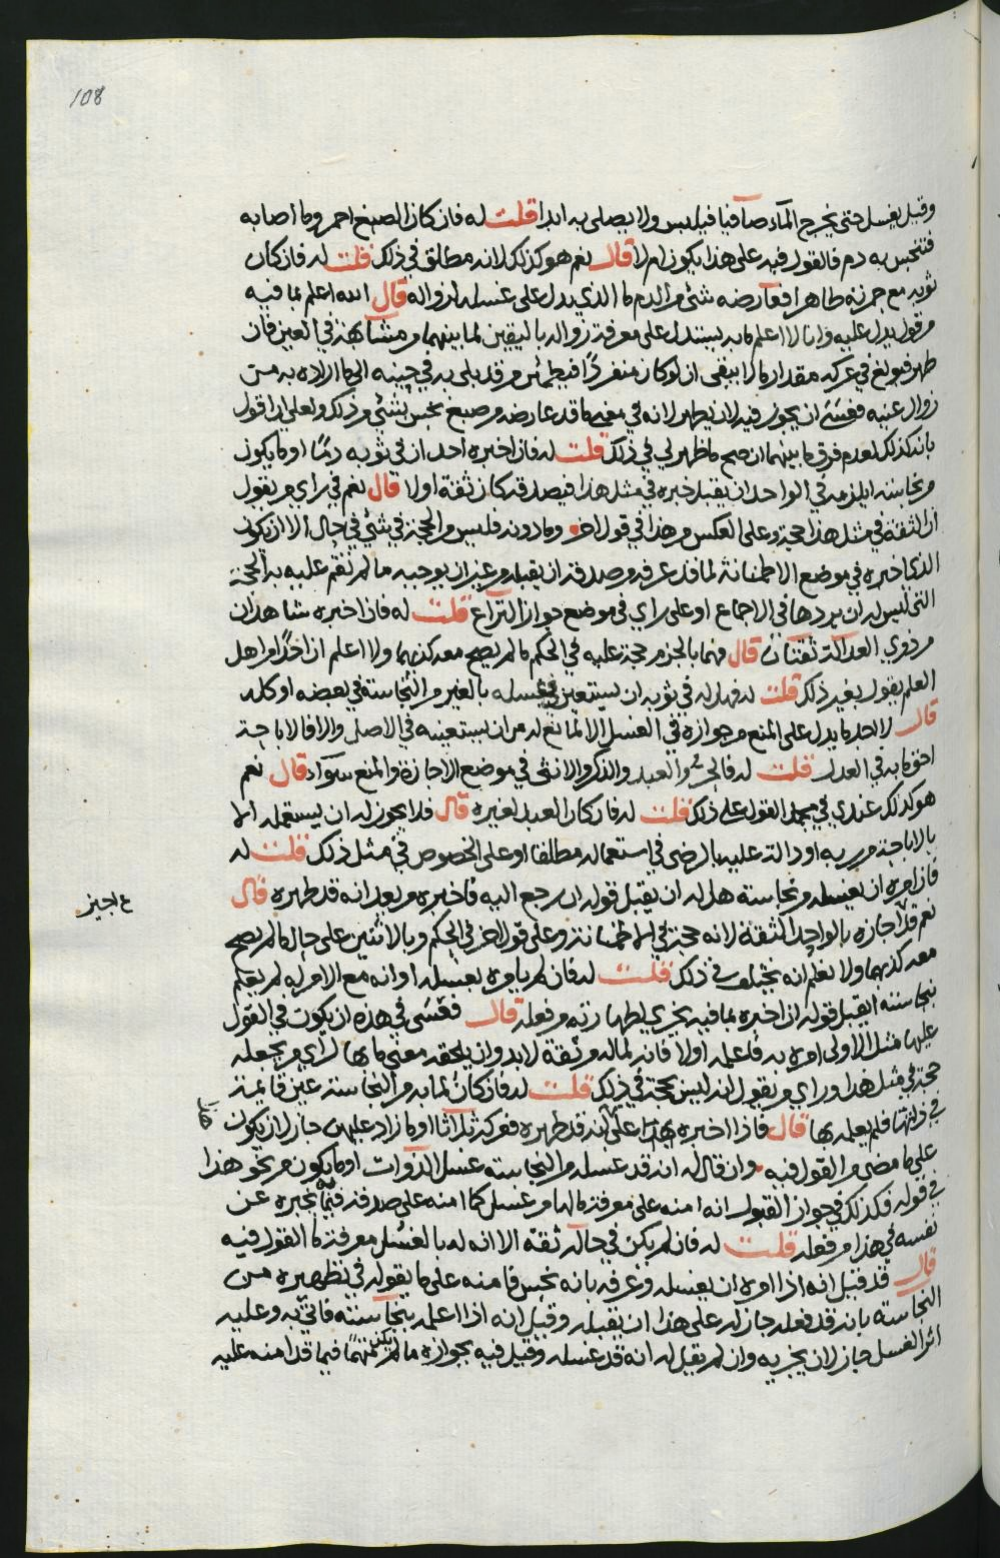 108
وقيل يغسل حتى يخرج الماء صافيا فيلبس ولا يصلى به ابدا قلت له فان كان الصبغ احمر وما اصابه
فتنجس به دم فالقول فيه على هذا يكون ام لا قال نعم هو كذلك لانه مطلق في ذلك قلت له فان كان
ثوبه مع حمرته طاهرا فعارضه شئ من الدم ما الذي يدل على غسله لزواله قال الله اعلم بما فيه
من قول يدل عليه وانا لا اعلم ما به يستدل على معرفة زواله باليقين لما بينهما من مشابهة في العين فان
طهر فبولغ في عركه مقدار ما لا يبقى ان لو كان منفردًا فيطمئن من قد بلى به في حينه الى ما اراده به من
زوال عنه فعسى ان يجوز فيه لان يطهر لانه في معنى ما قد عارضه من صبغ نجس بشئ من ذلك ولعلي ان اقول
بانه كذلك لعدم فرق ما بينهما ان صح ما ظهر لي في ذلك قلت له فان اخبره احد ان في ثوبه دمًا او ما يكون
من نجاسته ايلزمه في الواحد ان يقبل خبره في مثل هذا فيصدقه كان ثقة اولا قال نعم في راي من يقول
ان الثقة في مثل هذا حجة وعلى العكس من هذا في قول اخر وما دونه فليس من الحجة في شئ في حال الا ان يكون
الذي اخبره في موضع الاطمنانة لما قد عرفه من صدقه ان يقبله من غير ان يوجبه ما لم تقم عليه به الحجة
التي ليس له ان يردها في الاجماع او على راي في موضع جواز النزاع قلت له فان اخبره شاهدان
من ذوي العدالة ثقتان قال فهما بالجزم حجة عليه في الحكم ما لم يصح معه كذبهما ولا اعلم ان احدًا من اهل
العلم يقول بغير ذلك قلت له فهل له في ثوبه ان يستعين في غسله بالغير من النجاسة في بعضه او كله
قال لا اجد ما يدل على المنع من جوازه في الغسل الا لمانع له من ان يستعينه في الاصل والا فالاباحة
احق ما به في العدل قلت له فالحر والعبد والذكر والانثى في موضع الاجازة والمنع سواء قال نعم
هو كذلك عندي في مجمل القول على ذلك قلت له فان كان العبد لغيره قال فلا يجوز له ان يستعمله الا
بالاباحة من ربه او دالة عليه بالرضى في استعماله مطلقا او على الخصوص في مثل ذلك قلت له
فان امره ان يغسله من نجاسته هل له ان يقبل قوله ان رجع اليه فاخبره من بعد انه قد طهره قال
نعم قد اجازه بالواحد الثقة لانه حجة في الاطمنانة وعلى قول اخر في الحكم وبالاثنين على حال ما لم يصح
ع اجيز
معه كذبهما ولا نعلم انه يختلف في ذلك قلت له فان لم يامره بغسله او انه مع الامر له لم يعلم
بنجاسته ايقبل قوله ان اخبره بما فيه يجزي لطهارته من فعله قال فعسى في هذه ان يكون في القول
عليها مثل الاولى امره به فاعلمه اولا فانه لما له من ثقة لابد وان يلحقه معنى ما بها لراي من يجعله
حجة في مثل هذا وراي من يقول انه ليس بحجة في ذلك قلت له فان كان لما به من النجاسة عين قائمة
في ذاتها فلم يعلمه بها قال فاذا اخبره بعد هذا على انه قد طهره فعركه ثلاثا او ما زاد عليهن جاز لان يكون
على ما مضى من القول فيه وان قال له انه قد غسله من النجاسة غسل الذوات او ما يكون من نحو هذا
في قوله فكذلك في جواز القبول انه امنه على معرفة مالها من غسل كما امنه على صدقه فيما يخبره عن
نفسه في هذا من فعله قلت له فان لم يكن في حاله ثقة الا انه له بالغسل معرفة ما القول فيه
قال قد قيل انه اذا امره ان يغسله وعرفه بانه نجس فامنه على ما يقوله في تطهيره من
النجاسة بانه قد فعله جاز له على هذا ان يقبله وقيل انه اذا اعلمه بنجاسته فاتى به وعليه
اثر الغسل جاز لان يجزيه وان لم يقل له انه قد غسله وقيل فيه بجوازه ما لم يكن متهمًا فيما قد امنه عليه